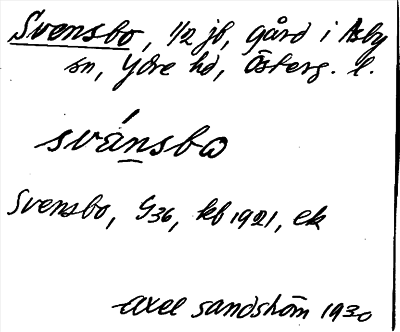 Svensbo, 1/2 jb, gård i Asby
sn, Ydre hd, Österg. l.
svánsbω
Svensbo, G36, kb 1921, ek
Axel Sandström 1930